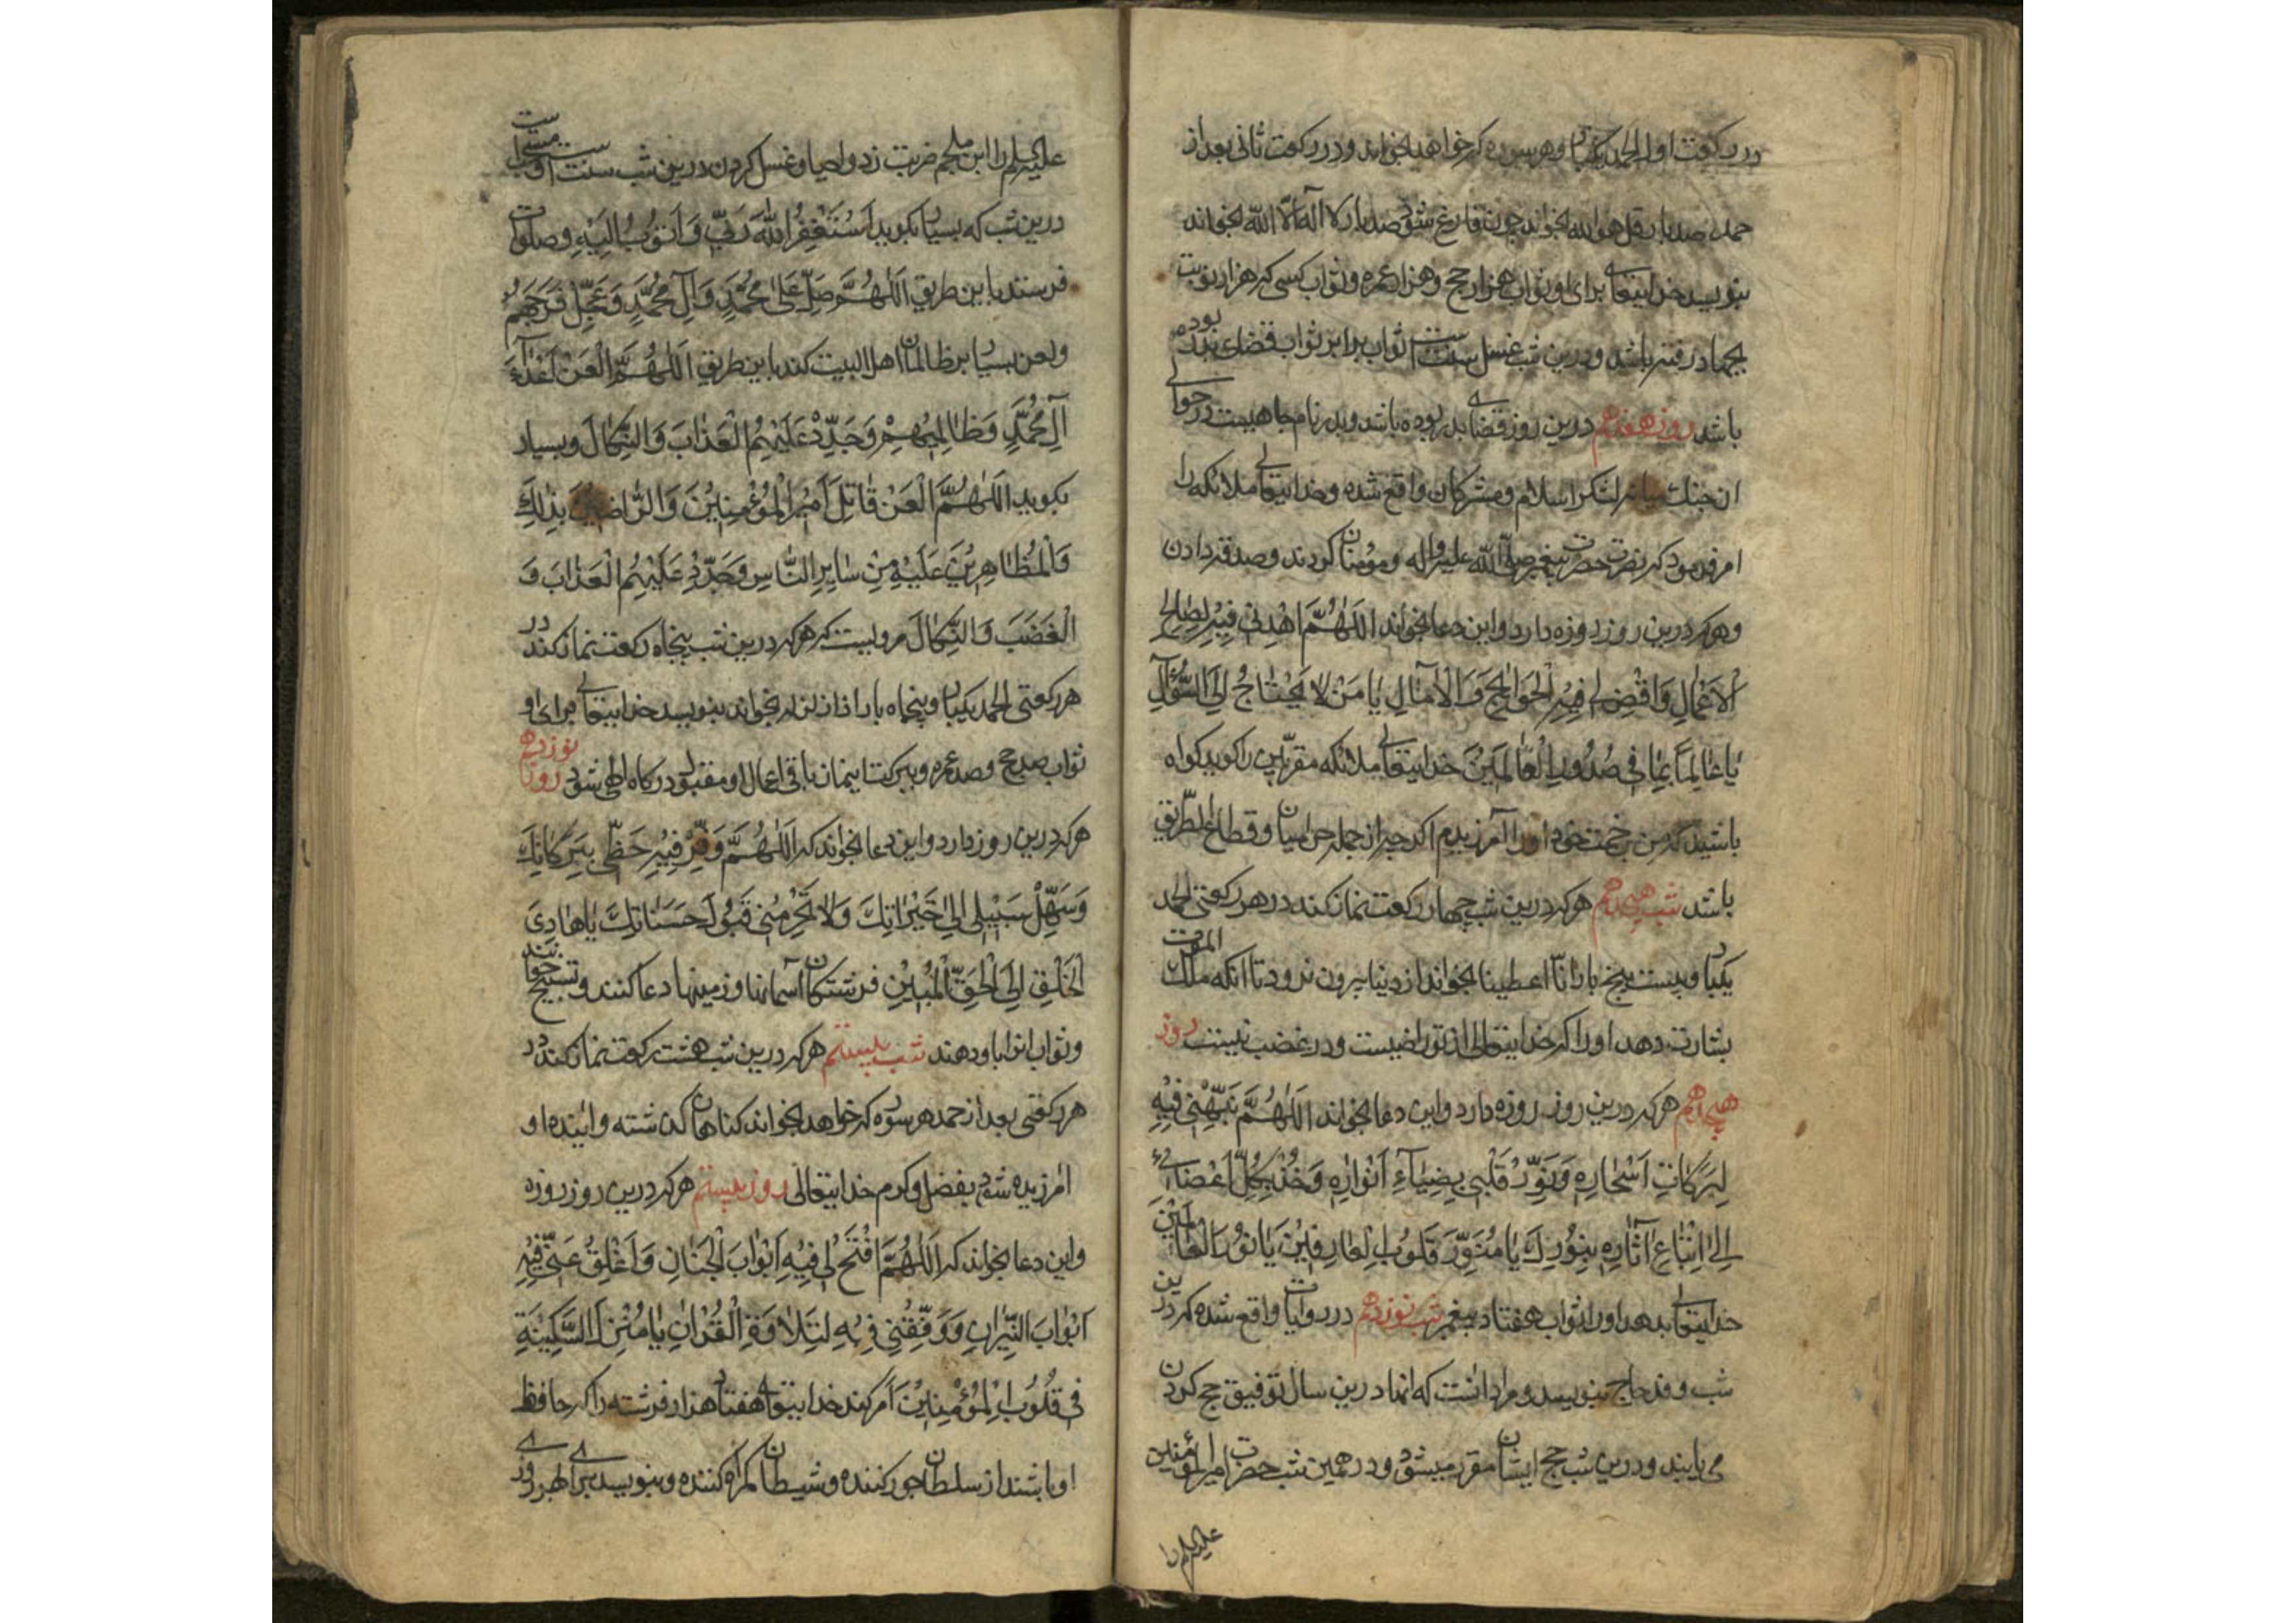 در رکعت اول الحمد یکبار و هر سوره که خواهد بخواند و در رکعت ثانی بعد از
حمد صد بار قل هو الله بخواند چون فارغ شود صد بار لا اله الا الله بخواند
بنویسد خدایتعالی برای او ثواب هزار حج و هزار عمره و ثواب کسی که هزار نوبت
بجهاد رفته باشد و درین شب غسل سنت است ثواب برابر ثواب قضای بوده
باشد روز هفدهم درین روز قضای بدر بوده باشد و بدر نام چاهیست در حوالی
آن جنك میانه لشکر اسلام و مشرکان واقع شده و خدایتعالی ملائکه را
امر فرمود که نصرت حضرت پیغمبر صلی الله علیه و اله و مؤمنان کردند و صدقه دادن
و هر که درین روز روزه دارد و این دعا بخواند اَللّٰهُمَّ اهْدِنی فِیْهِ لِصٰالِحِ
الْاَعْمٰالِ وَاقْضِ لی فِیْهِ الْحَوٰائِجَ وَالْاٰمٰالِ یٰا مَنْ لٰا یَحْتٰاجُ اِلَی السُّؤٰالِ
یٰا عٰالِمًا بِمٰا فی صُدُورِ الْعٰالَمیْنَ خدایتعالی ملائکه مقربین را کوید کواه
باشید که من خود اورا آمرزیدم اکر چه از جمله حرامیان و قطاع الطریق
باشد شب هیجدهم هر که درین شب چهار رکعت نماز کند در هر رکعتی الحمد
یکبار و بیست پنج بار انّا اعطینا بخواند از دنیا بیرون نرود تا آنکه ملك الموت
بشارت دهد اورا که خدایتعالی از تو راضیست و در غضب نیست روز
هیجدهم هر که درین روز روزه دارد و این دعا بخواند اَللّٰهُمَّ نَبِّهْنی فیْهِ
لِبَرَکٰاتِ اَسْحٰارِهِ وَنَوِّرْ قَلْبی بِضِیٰآءِ اَنْوٰارِهِ وَخُذْ بِکُلِّ اَعْضٰائی
اِلٰی اِتِّبٰاعِ اٰثٰارِهِ بِنُوْرِكَ یٰا مُنَوِّرَ قُلُوْبِ الْعٰارِفیْنَ یٰا نُوْرَ الْعٰالَمیْنَ
خدایتعالی بدهد اورا ثواب هفتاد پیغمبر شب نوزدهم در روایات واقع شده که درین
شب وفد حاج بنویسد و مراد آنست که آنها درین سال توفیق حج کردن
می یابند و درین شب حج ایشان مقرر میشود و در همین شب حضرت امیر المؤمنین
علیه السلم را
علیه السلم را ابن ملجم ضربت زد و احیا و غسل کردن درین شب سنت است و مستحب است
درین شب که بسیار بکوید اَسْتَغْفِرُ اللّٰهَ رَبّی وَاَتُوْبُ اِلَیْهِ و صلوات
فرستد باین طریق اَللّٰهُمَّ صَلِّ عَلٰی مُحَمَّدٍ وَاٰلِ مُحَمَّدٍ وَعَجِّلْ فَرَجَهُمْ
و لعن بسیار بر ظالمان اهل البیت کند باین طریق اَللّٰهُمَّ الْعَنْ اَعْدٰآءَ
اٰلِ مُحَمَّدٍ وَظٰالِمیْهِمْ وَجَدِّدْ عَلَیْهِمُ الْعَذٰابَ وَالنَّکٰالَ و بسیار
بکوید اَللّٰهُمَّ الْعَنْ قٰاتِلَ اَمیْرِ الْمُؤْمِنیْنَ وَالرّٰاضیْنَ بِذٰلِكَ
وَالْمُظٰاهِریْنَ عَلَیْهِ مِنْ سٰایِرِ النّٰاسِ وَجَدِّدْ عَلَیْهِمُ الْعَذٰابَ وَ
الْغَضَبَ وَالنَّکٰالَ مرویست که هر که درین شب پنجاه رکعت نماز کند در
هر رکعتی الحمد یکبار و پنجاه بار اذا زلزله بخواند بنویسد خدایتعالی برای او
ثواب صد حج و صد عمره و ببرکت این نماز باقی اعمال او مقبول درکاه الهی شود روز نوزدهم
هر که درین روز دارد و این دعا بخواند که اَللّٰهُمَّ وَفِّرْ فیْهِ حَظّی بِبَرَکٰاتِكَ
وَسَهِّلْ سَبیْلی اِلٰی خَیْرٰاتِكَ وَلٰا تَحْرِمْنی قَبُوْلَ حَسَنٰاتِكَ یٰا هٰادِیَ
الْخَلْقِ اِلَی الْحَقِّ الْمُبیْنِ فرشتکان آسمانها و زمینها دعا کنند و تسبیح خوانند
و ثواب انرا باو دهند شب بیستم هر که درین شب هشت رکعت نماز کند در
هر رکعتی بعد از حمد هر سوره که خواهد بخواند کناهان کذشته و اینده او
امرزیده شود بفضل و کرم خدایتعالی روز بیستم هر که درین روز روزه
و این دعا بخواند که اَللّٰهُمَّ افْتَحْ لی فیْهِ اَبْوٰابَ الْجِنٰانِ وَاَغْلِقْ عَنّی فیْهِ
اَبْوٰابَ النّیْرٰانِ وَوَفِّقْنی فیْهِ لِتِلٰاوَةِ الْقُرْاٰنِ یٰا مُنْزِلَ السَّکیْنَةِ
فی قُلُوْبِ الْمُؤْمِنیْنَ امر کند خدایتعالی هفتاد هزار فرشته را که حافظ
او باشند از سلطان جور کننده و شیطان کمراه کننده و بنویسد برای هر روزی